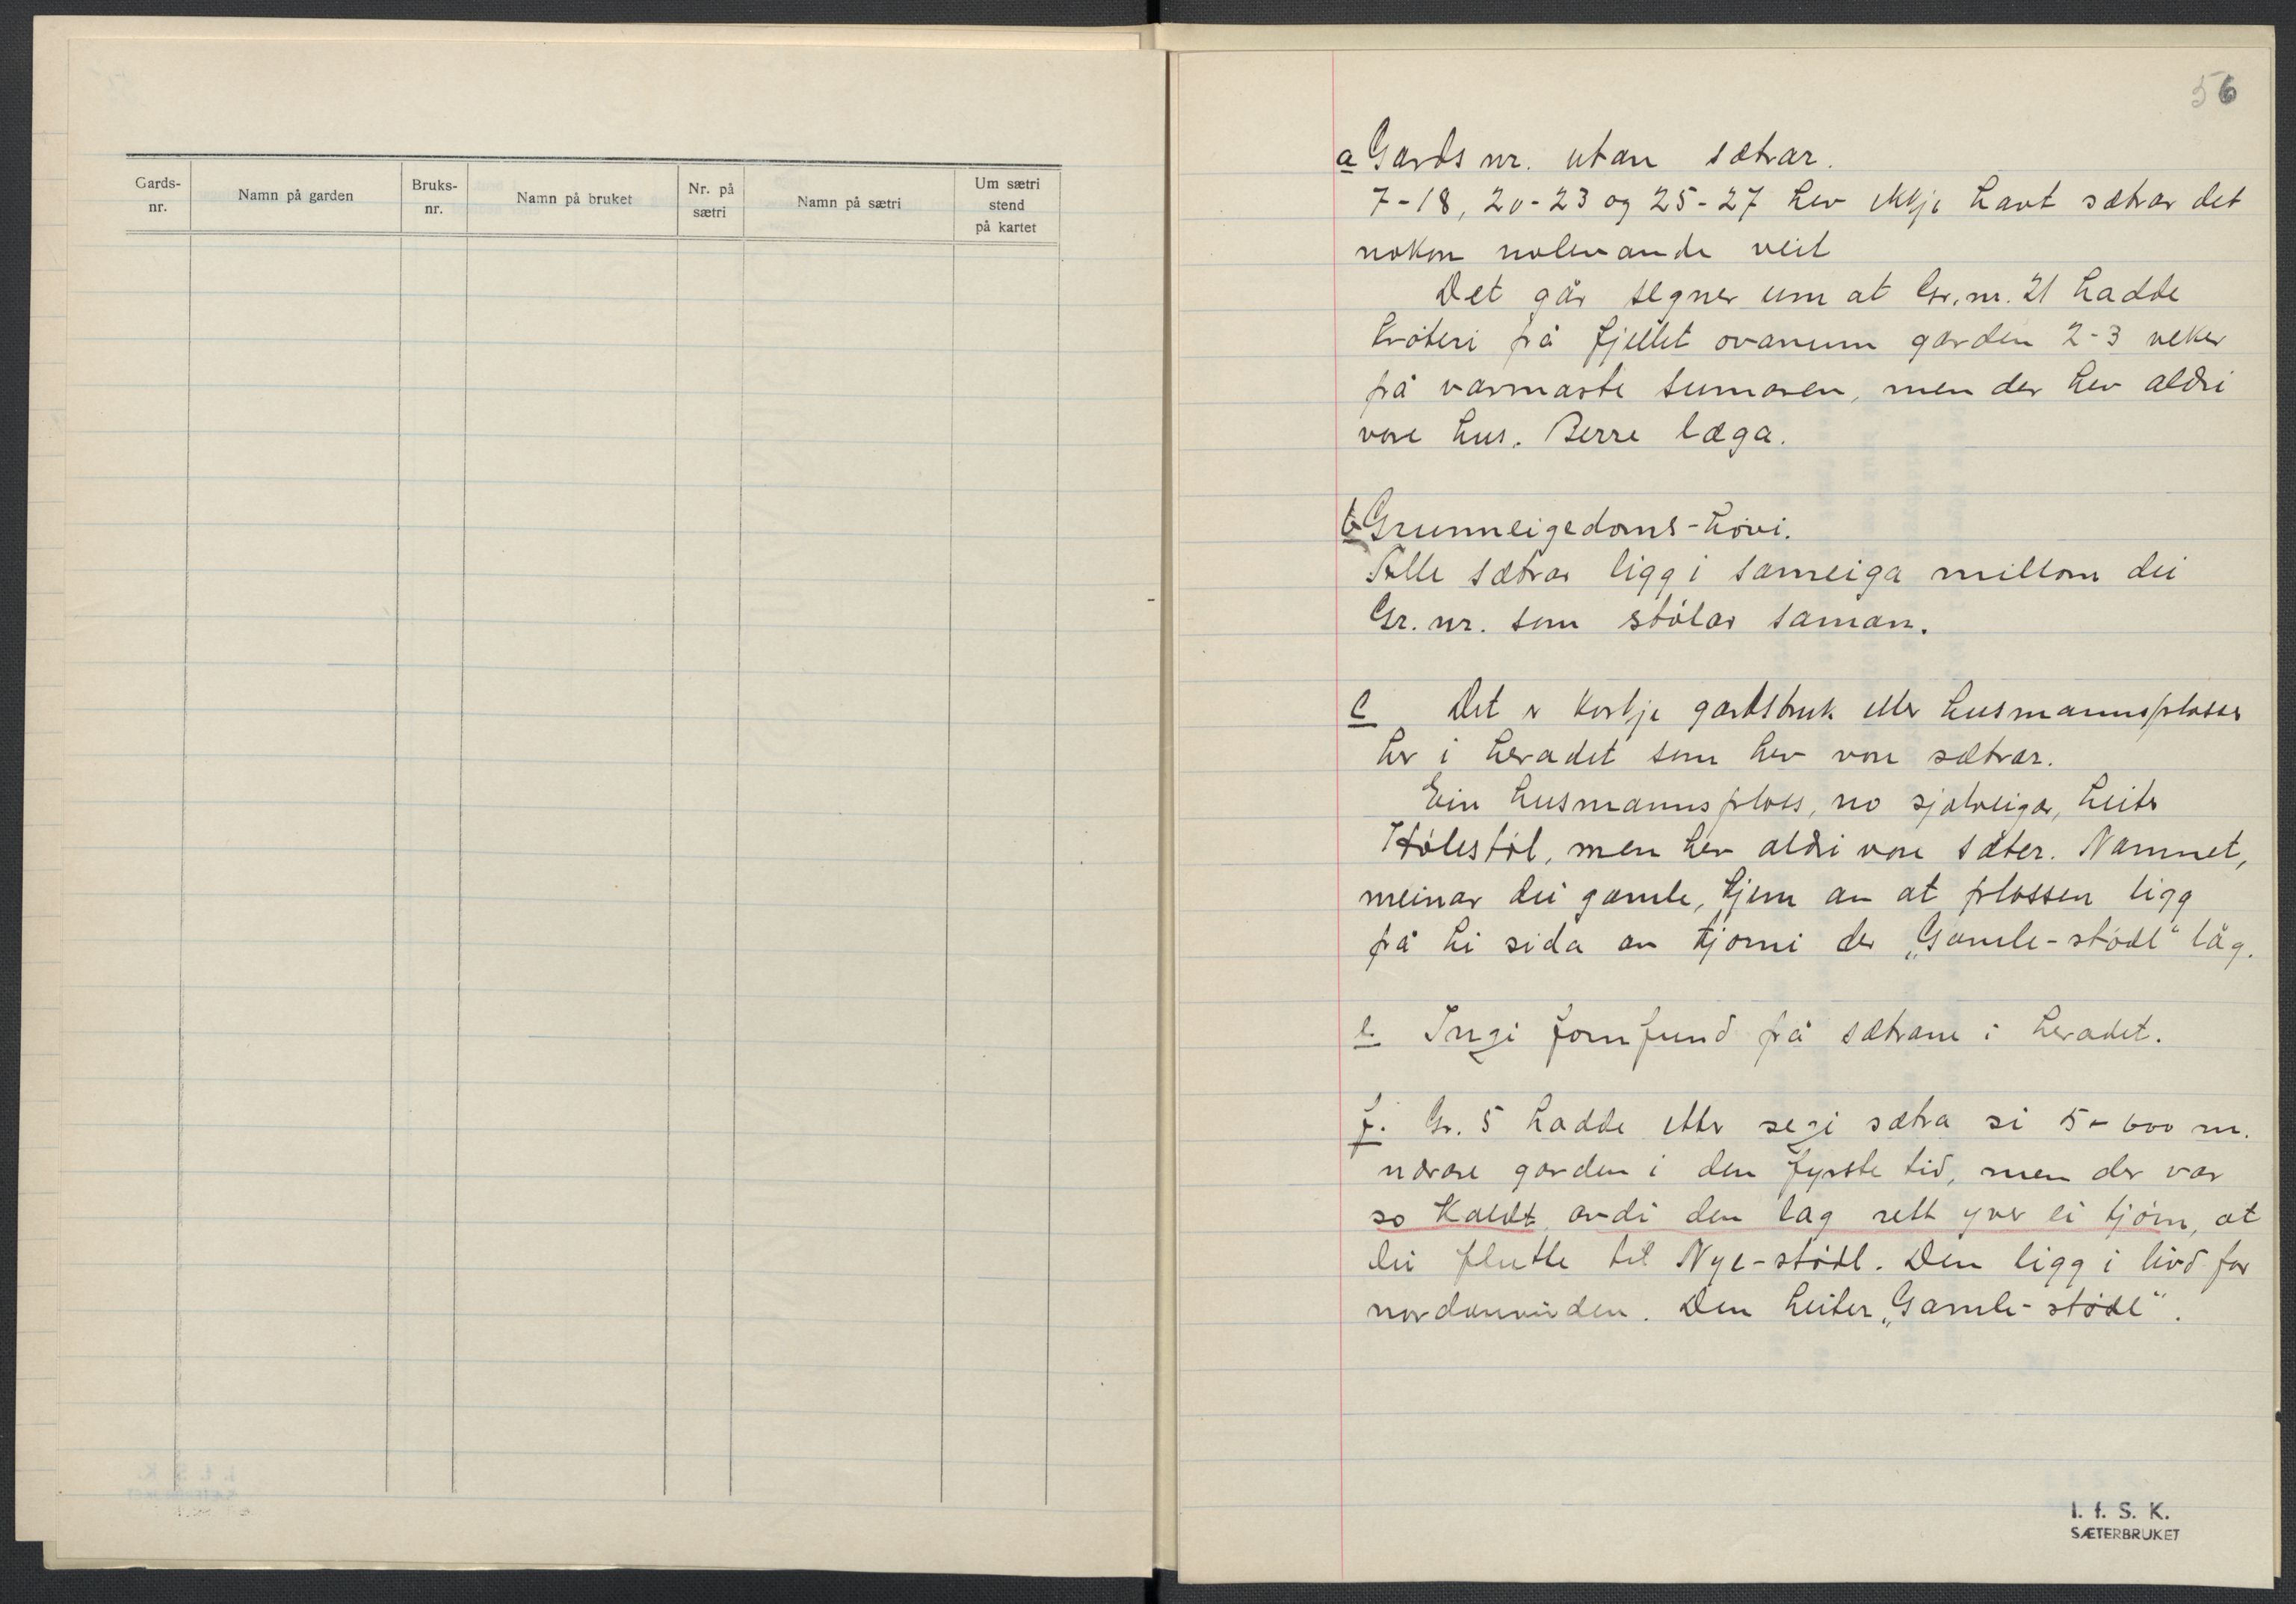 Gards-
nr.
Namn på garden
Bruks-
nr.
Namn på bruket
Nr. på
sætri
Namn på sætri
Um sætri
stend
på kartet
56
a Gards nr. utan sætrar.
7-18, 20-23 og 25-27 hev ikkje havt sætrar det
nokon nolevande veit
Det går segner um at Gr. nr. 21 hadde
krøteri på fjellet ovanum garden 2-3 veker
på varmaste sumaren, men der hev aldri
vore hus. Berre læga.
b Grunneigedoms-høvi.
Alle sætrar ligg i sameiga millom dei
Gr. nr. som stølar saman.
c Det er korkje gardsbruk eller husmannsplasser
her i heradet som hev vore sætrar.
Ein husmannsplass, no sjølveigar, heiter
Hølestøl, men hev aldri vore sæter. Namnet,
meinar dei gamle, kjem av at plassen ligg
på hi sida av tjørni der „Gamle-stødl" låg.
e. Ingi fornfund på sætrane i heradet.
f. Gr. 5 hadde etter segi sætra si 5-600 m.
nærare garden i den fyrste tid, men der var
so kaldt, avdi den låg rett yver ei tjørn, at
dei flutte til Nye-stødl. Den ligg i livd for
nordanvinden. Den heiter „Gamle-stødl".
I. f. S. K.
SÆTERBRUKET